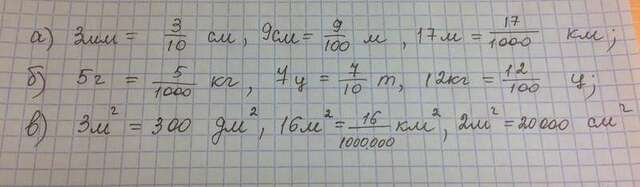 а) 3мм = 3/10 см, 9см = 9/100 м, 17м = 17/1000 км;
б) 5г = 5/1000 кг, 7ц = 7/10 т, 12кг = 12/100 ц;
в) 3м² = 300 дм², 16м² = 16/1000,000 км², 2м² = 20000 см²